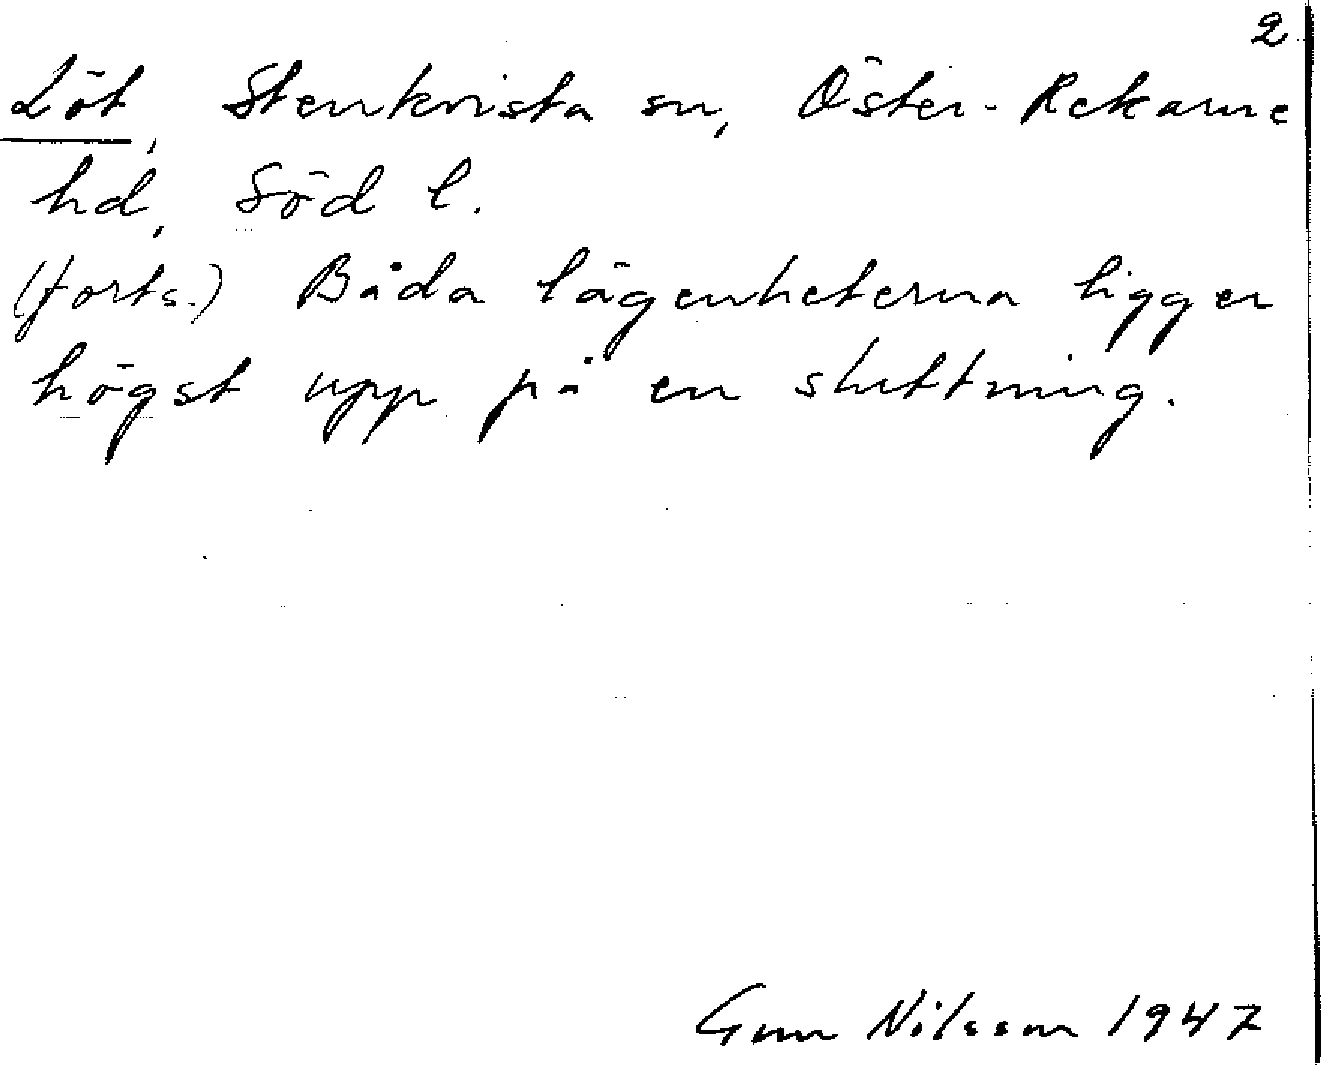 2
Löt, Stenkvista sn, Öster-Rekarne
hd, Söd l.
(forts.) Båda lägenheterna ligger
högst upp på en sluttning.
Gun Nilsson 1947